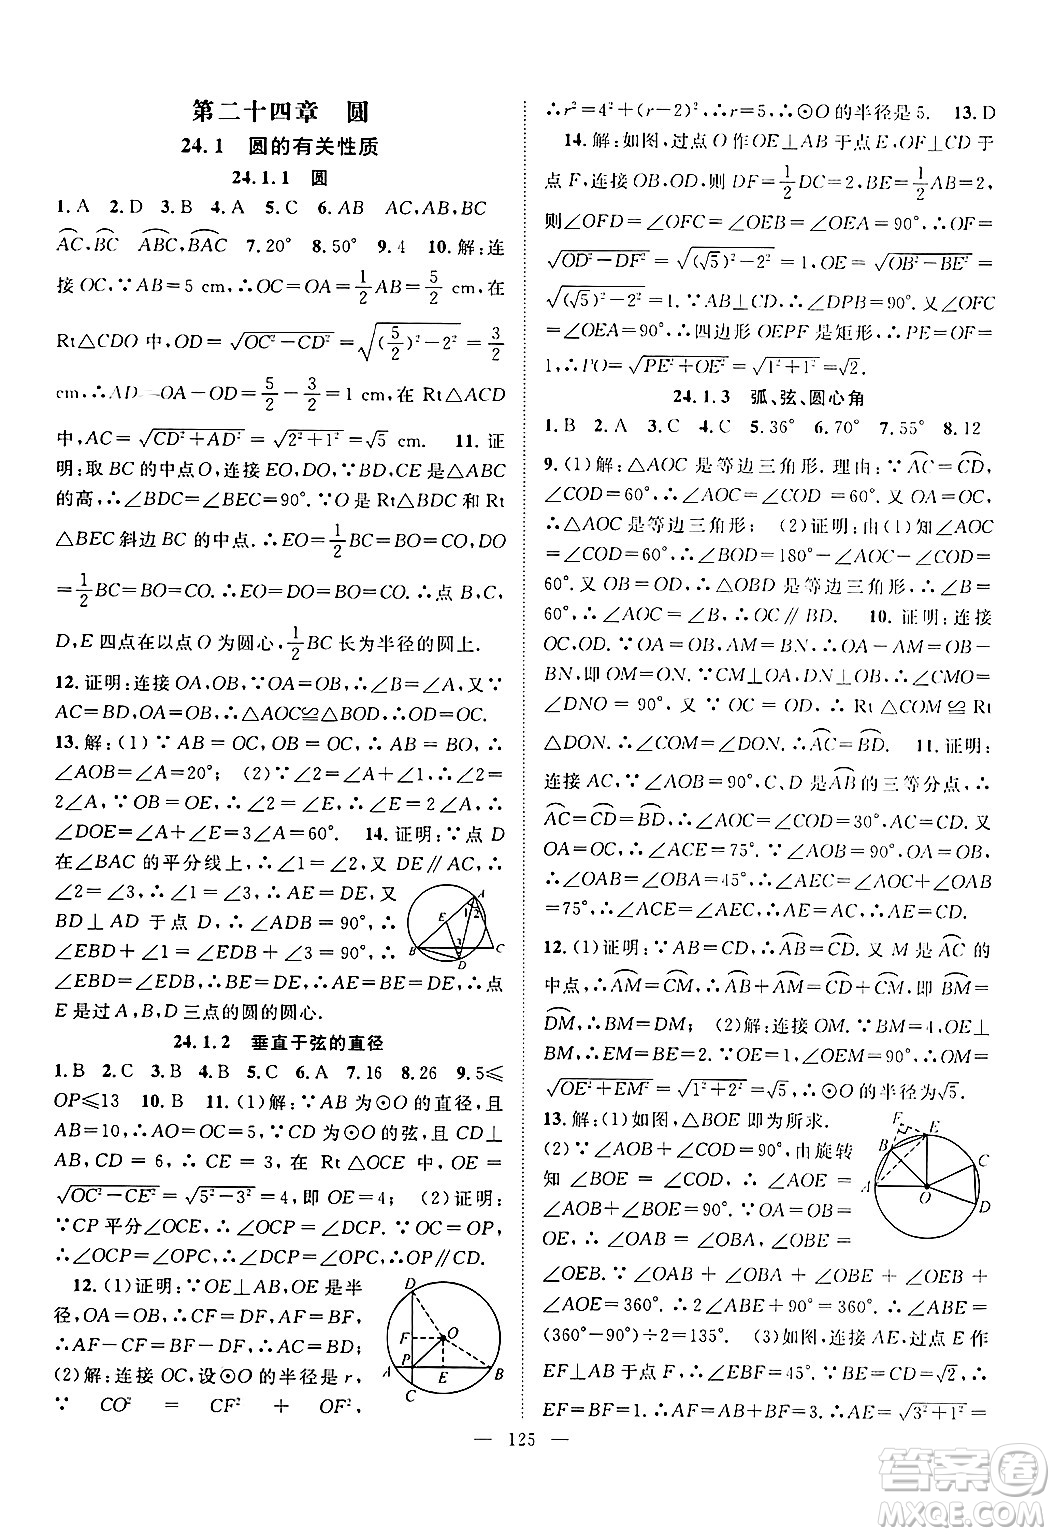 第二十四章 圆
24.1 圆的有关性质
24.1.1 圆
1. A 2. D 3. B 4. A 5. C 6. AB AC,AB,BC
A͡C,B͡C A͡BC,B͡AC 7. 20° 8. 50° 9. 4 10. 解:连
接 OC,∵AB=5 cm,∴OC=OA=1/2AB=5/2 cm,在
Rt△CDO 中,OD=√(OC²-CD²)=√((5/2)²-2²)=3/2
cm,∴AD=OA-OD=5/2-3/2=1 cm,在 Rt△ACD
中,AC=√(CD²+AD²)=√(2²+1²)=√5 cm. 11. 证
明:取 BC 的中点 O,连接 EO,DO,∵BD,CE 是△ABC
的高,∴∠BDC=∠BEC=90°.∵O 是 Rt△BDC 和 Rt
△BEC 斜边 BC 的中点.∴EO=1/2BC=BO=CO,DO
=1/2BC=BO=CO,∴EO=DO=BO=CO,∴B,C,
D,E 四点在以点 O 为圆心,1/2BC 长为半径的圆上.
12. 证明:连接 OA,OB,∵OA=OB,∴∠B=∠A,又∵
AC=BD,OA=OB,∴△AOC≌△BOD,∴OD=OC.
13. 解:(1)∵AB=OC,OB=OC,∴AB=BO,∴
∠AOB=∠A=20°; (2)∵∠2=∠A+∠1,∴∠2=
2∠A,∵OB=OE,∴∠2=∠E,∴∠E=2∠A,∴
∠DOE=∠A+∠E=3∠A=60°. 14. 证明:∵点 D
在∠BAC 的平分线上,∴∠1=∠2,又 DE∥AC,∴
∠2=∠3,∴∠1=∠3,∴AE=DE,又
BD⊥AD 于点 D,∴∠ADB=90°,∴
∠EBD+∠1=∠EDB+∠3=90°,∴
∠EBD=∠EDB,∴BE=DE,∴AE=BE=DE,∴点
E 是过 A,B,D 三点的圆的圆心.
24.1.2 垂直于弦的直径
1. B 2. C 3. C 4. B 5. C 6. A 7. 16 8. 26 9. 5≤
OP≤13 10. B 11. (1)解:∵AB 为⊙O 的直径,且
AB=10,∴AO=OC=5,∵CD 为⊙O 的弦,且 CD⊥
AB,CD=6,∴CE=3,在 Rt△OCE 中,OE=
√(OC²-CE²)=√(5²-3²)=4,即 OE=4; (2)证明:
∵CP 平分∠OCE,∴∠OCP=∠DCP.∵OC=OP,
∴∠OCP=∠OPC,∴∠OPC=∠DCP,∴OP∥CD.
12. (1)证明:∵OE⊥AB,OE 是半
径,OA=OB,∴CF=DF,AF=BF,
∴AF-CF=BF-DF,∴AC=BD;
(2)解:连接 OC,设⊙O 的半径是 r,
∵ CO² = CF² + OF²,
D
F O
A P E B
C
∴r²=4²+(r-2)²,∴r=5,∴⊙O 的半径是 5. 13. D
14. 解:如图,过点 O 作 OE⊥AB 于点 E,OF⊥CD 于
点 F,连接 OB,OD,则 DF=1/2DC=2,BE=1/2AB=2,
则∠OFD=∠OFC=∠OEB=∠OEA=90°,∴OF=
√(OD²-DF²)=√((√5)²-2²)=1,同理 OE=√(OB²-BE²)=
√((√5)²-2²)=1,∵AB⊥CD,∴∠DPB=90°.又∠OFC
=∠OEA=90°,∴四边形 OEPF 是矩形,∴PE=OF=
1,∴PO=√(PE²+OE²)=√(1²+1²)=√2.
24.1.3 弧、弦、圆心角
1. B 2. A 3. C 4. C 5. 36° 6. 70° 7. 55° 8. 12
9. (1)解:△AOC 是等边三角形.理由:∵A͡C=C͡D,
∠COD=60°,∴∠AOC=∠COD=60°.又 OA=OC,
∴△AOC 是等边三角形; (2)证明:由(1)知∠AOC
=∠COD=60°,∴∠BOD=180°-∠AOC-∠COD=
60°.又 OB=OD,∴△OBD 是等边三角形,∴∠B=
60°,∴∠AOC=∠B,∴OC∥BD. 10. 证明:连接
OC,OD.∵OA=OB,AM=BN,∴OA-AM=OB-
BN,即 OM=ON.∵CM⊥AB,DN⊥AB,∴∠CMO=
∠DNO=90°.∵OC=OD,∴Rt△COM≌Rt
△DON.∴∠COM=∠DON,∴A͡C=B͡D. 11. 证明:
连接 AC,∵∠AOB=90°,C,D 是A͡B的三等分点,∴
A͡C=C͡D=B͡D,∴∠AOC=∠COD=30°,AC=CD.又
OA=OC,∴∠ACE=75°.∵∠AOB=90°,OA=OB,
∴∠OAB=∠OBA=45°,∴∠AEC=∠AOC+∠OAE
=75°,∴∠ACE=∠AEC,∴AE=AC,∴AE=CD.
12. (1)证明:∵AB=CD,∴A͡B=C͡D.又 M 是A͡C的
中点,∴A͡M=C͡M,∴A͡B+A͡M=C͡D+C͡M,即B͡M=
D͡M,∴BM=DM; (2)解:连接 OM.∵BM=4,OE⊥
BM,∴EM=BE=2.∵OE=1,∠OEM=90°,∴OM=
√(OE²+EM²)=√(1²+2²)=√5,∴⊙O 的半径为√5.
13. 解:(1)如图,△BOE 即为所求.
(2)∵∠AOB+∠COD=90°,由旋转
知∠BOE=∠COD,∴∠AOE=
∠AOB+∠BOE=90°.∵OA=OB=
OE,∴∠OAB=∠OBA,∠OBE=
∠OEB.∵∠OAB+∠ABE+∠OEB+
∠AOE=360°.∴2∠ABE+90°=360°,∴∠ABE=
(360°-90°)÷2=135°. (3)如图,连接 AE,过点 E 作
EF⊥AB于点 F,∴∠EBF=45°.∵BE=CD=√2,∴
EF=BF=1.∵AB=2,∴AF=3,∴AE=√(3²+1²)=
A B C D E O 1 2 3
A B C D E F O
— 125 —
答案圈
MXQE.COM